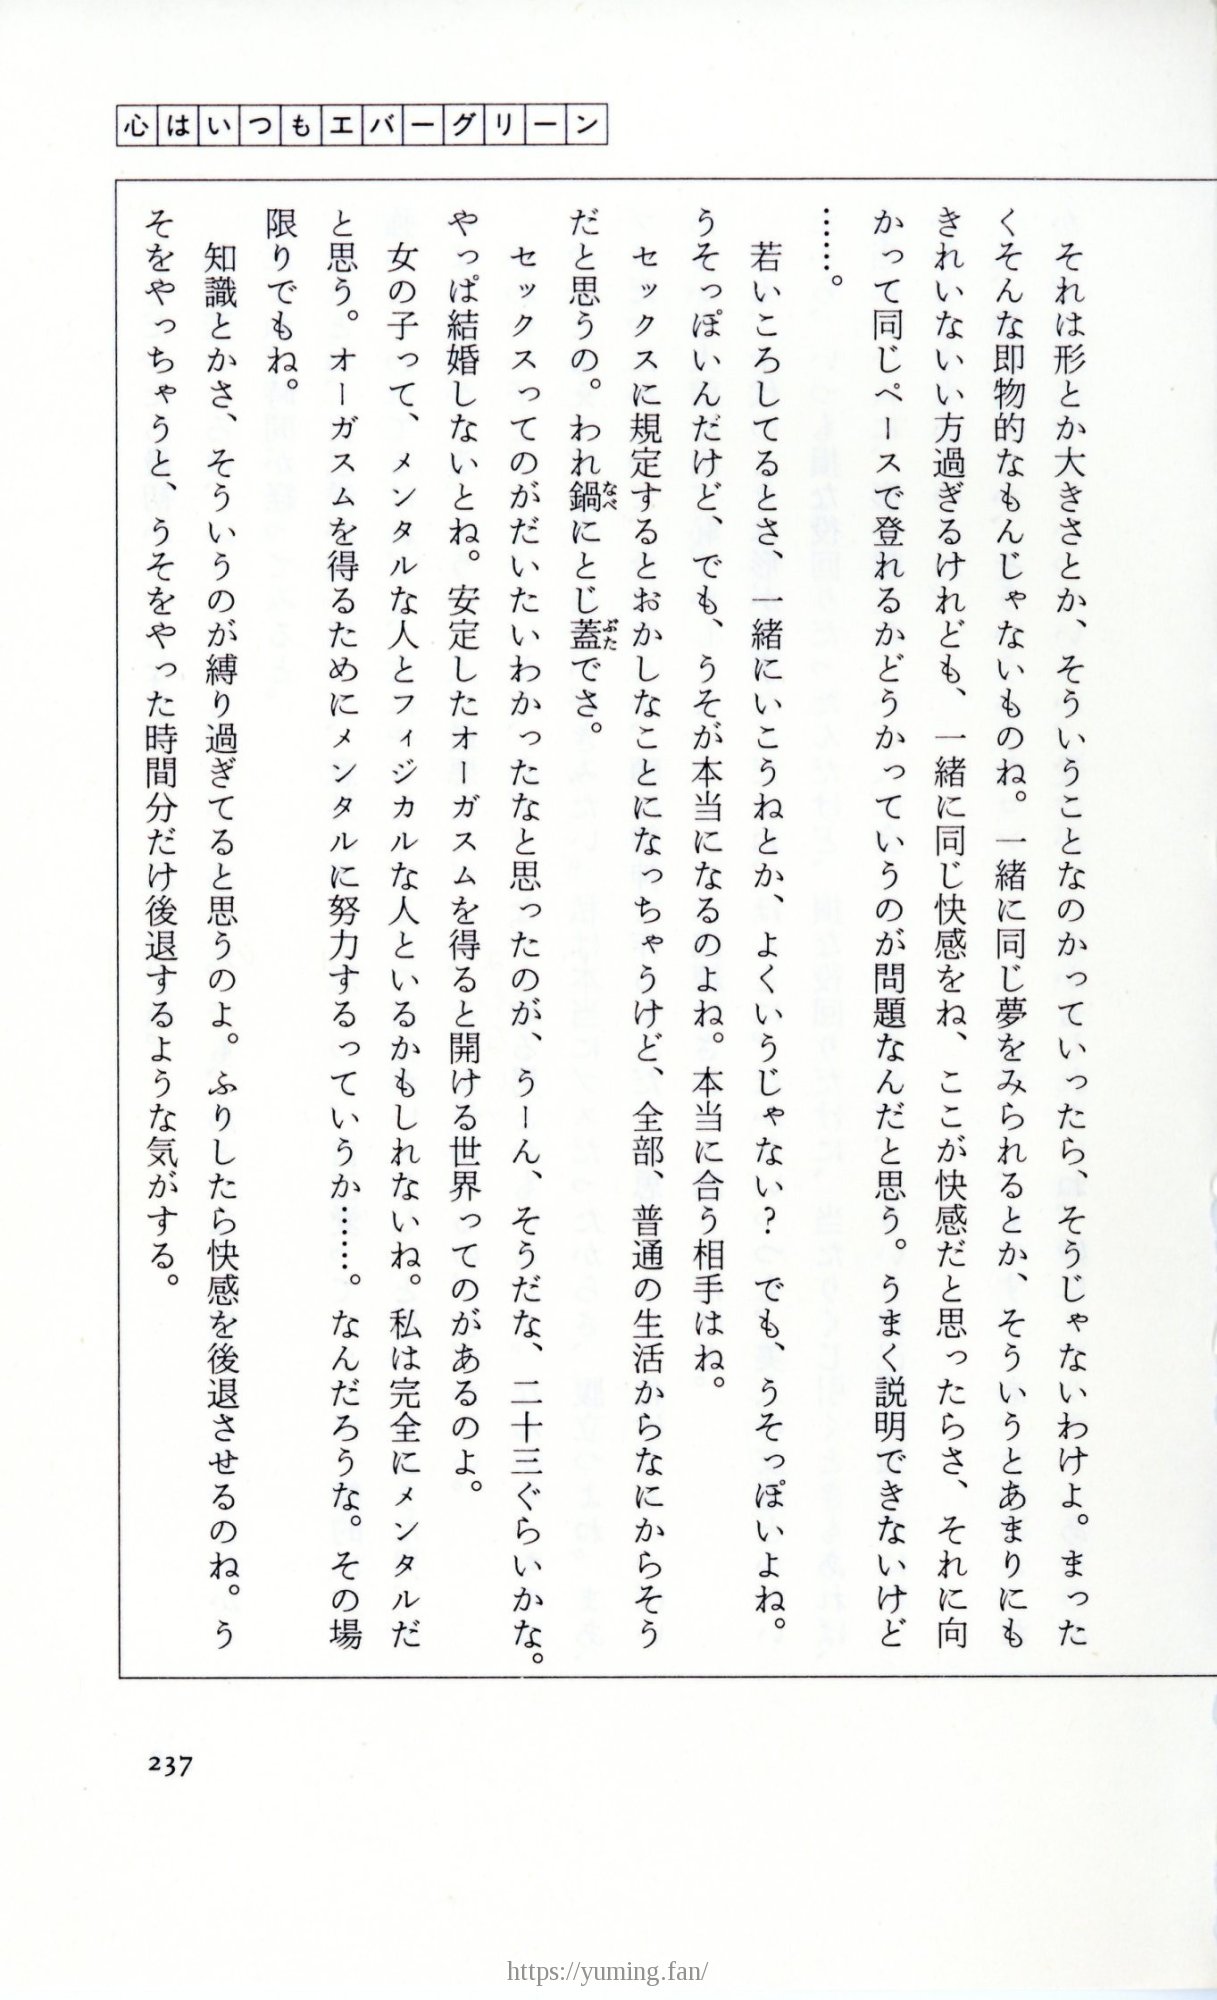 心はいつもエバーグリーン
　それは形とか大きさとか、そういうことなのかっていったら、そうじゃないわけよ。まった
くそんな即物的なもんじゃないものね。一緒に同じ夢をみられるとか、そういうとあまりにも
きれいないい方過ぎるけれども、一緒に同じ快感をね、ここが快感だと思ったらさ、それに向
かって同じペースで登れるかどうかっていうのが問題なんだと思う。うまく説明できないけど
……。
　若いころしてるとさ、一緒にいこうねとか、よくいうじゃない？ でも、うそっぽいよね。
うそっぽいんだけど、でも、うそが本当になるのよね。本当に合う相手はね。
　セックスに規定するとおかしなことになっちゃうけど、全部、普通の生活からなにからそう
だと思うの。われ鍋なべにとじ蓋ぶたでさ。
　セックスってのがだいたいわかったなと思ったのが、うーん、そうだな、二十三ぐらいかな。
やっぱ結婚しないとね。安定したオーガスムを得ると開ける世界ってのがあるのよ。
　女の子って、メンタルな人とフィジカルな人といるかもしれないね。私は完全にメンタルだ
と思う。オーガスムを得るためにメンタルに努力するっていうか……。なんだろうな。その場
限りでもね。
　知識とかさ、そういうのが縛り過ぎてると思うのよ。ふりしたら快感を後退させるのね。う
そをやっちゃうと、うそをやった時間分だけ後退するような気がする。
237
https://yuming.fan/